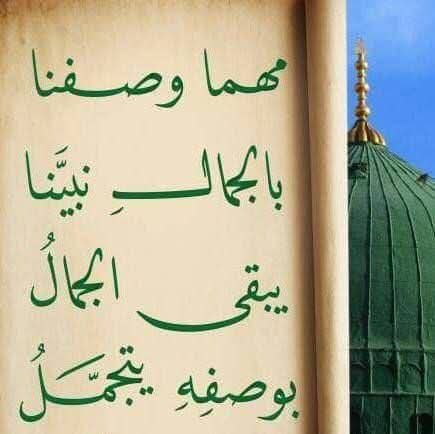 مهما وصفنا
بالجمالِ نبيَّنا
يبقى الجمالُ
بوصفِهِ يتجمَّلُ